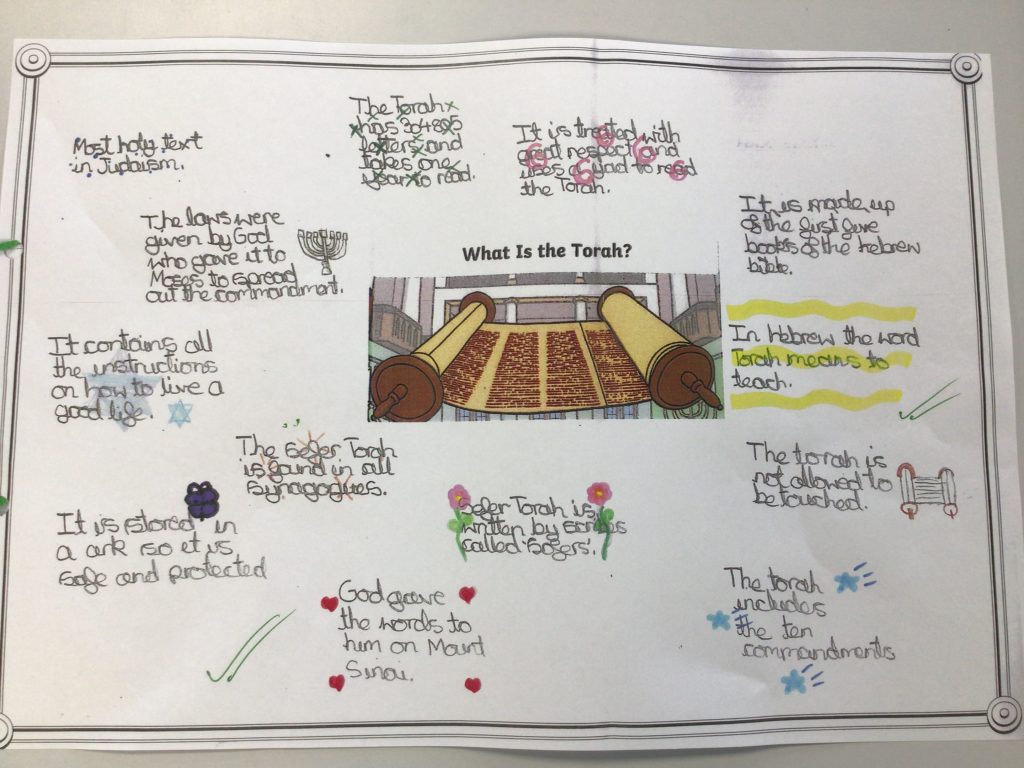 Most holy text
in Judaism.
The Torah
has 304805
letters and
takes one
year to read.
It is treated with
great respect and
uses a yad to read
the Torah.
It is made up
of the first five
books of the hebrew
bible.
The laws were
given by God
who gave it to
Moses to spread
out the commandment.
What Is the Torah?
In hebrew the word
Torah means to
teach.
It contains all
the instructions
on how to live a
good life.
The Sefer Torah
is found in all
synagogues.
The torah is
not allowed to
be touched.
It is stored in
a ark so it is
safe and protected
Sefer Torah is
written by
called 'Sofers'.
God gave
the words to
him on Mount
Sinai.
The torah
includes
the ten
commandments